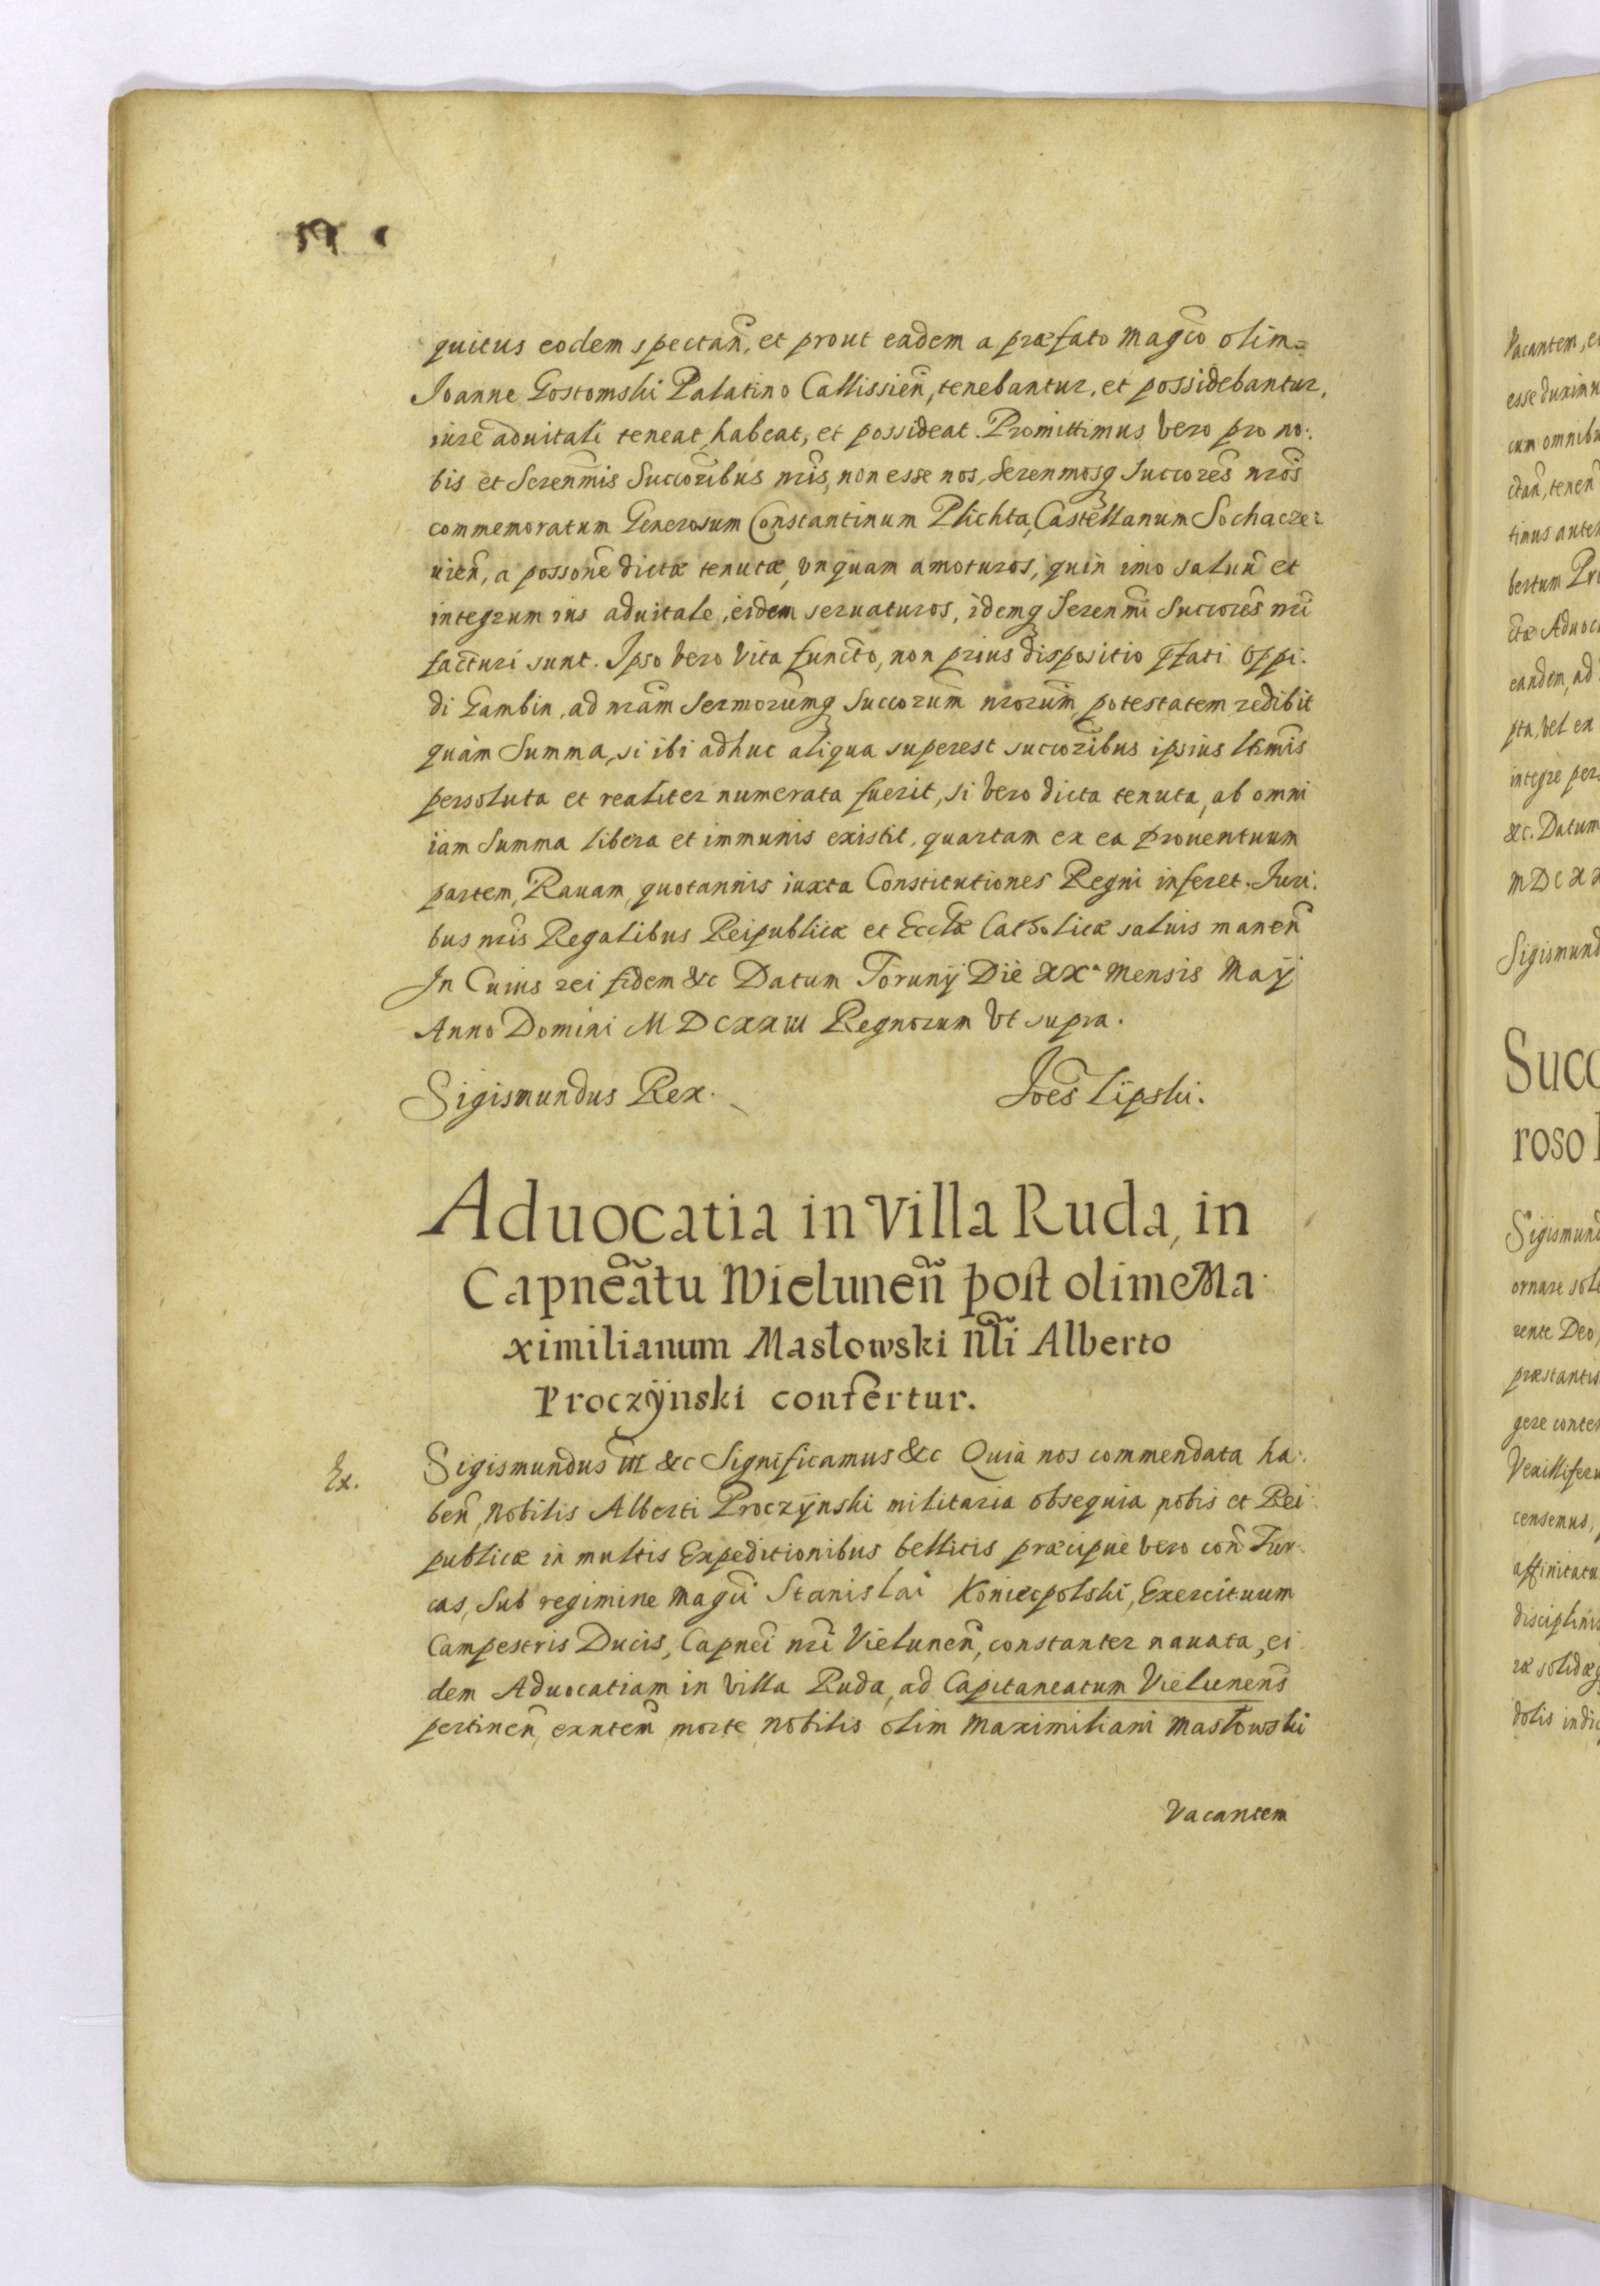 quitus eodem spectañ, et prout eadem a præfato Magc̃o olim=
Joanne Gostomski Palatino Callissieñ, tenebantur, et possidebantur,
iure aduitali teneat, habeat, et possideat. Promittimus vero pro no:
bis et Serenm̃is Succor̃ibus nr̃is, non esse nos, Serenmosq Succorẽs nr̃os
commemoratum Generosum Constantinum Plichta, Castellanum Sochacze:
uień, a possonẽ dictæ tenutæ, vnquam amoturos, quin imo saluũ et
integrum ius aduitale, eidem seruaturos, idemq Serenm̃i Succorẽs nr̃i
facturi sunt. Ipso vero vita functo, non prius dispositio p̃fati Oppi:
di Gambin, ad nr̃am Sermorumq Succorum nr̃orum potestatem redibit
quàm Summa, si ibi adhuc aliqua superest succor̃ibus ipsius ltm̃is
persoluta et realiter numerata fuerit, si vero dicta tenuta, ab omni
iam Summa libera et immunis existit, quartam ex ea prouentuum
partem, Rauam, quotannis iuxta Constitutiones Regni inferet. Juri:
bus nr̃is Regalibus Reipublicæ et Eccl̃æ Catholicæ saluis maneñ
In Cuius rei fidem &c Datum Torunij Die XXa Mensis Maij
Anno Domini MDCXXIII Regnorum vt supra.
Sigismundus Rex.
Joẽs Lipski.
Aduocatia in Villa Ruda, in
Capneãtu Wieluneñ post olim Ma
ximilianum Masłowski Nl̃i Alberto
Proczÿnski confertur.
Ex.
Sigismundus III &c Significamus &c Quia nos commendata ha:
beñ, Nobilis Alberti Proczÿnski militaria obsequia nobis et Rei
publicæ in multis Expeditionibus bellicis præcipuè vero coñ Tur
cas, Sub regimine Magci Stanislai Koniecpolski, Exercituum
Campestris Ducis, Capnẽi nr̃i Vieluneñ, constanter nauata, ei
dem Aduocatiam in Villa Ruda, ad Capitaneatum Vielunenš
pertineñ, exnteñ, morte Nobilis olim Maximiliani Masłowski
Vacantem